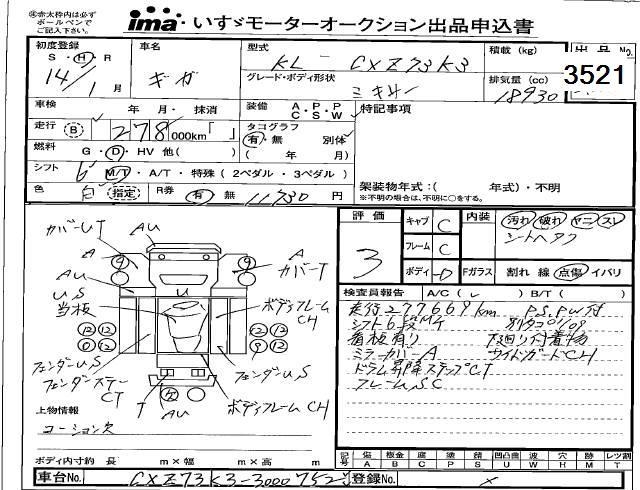 ㊟赤太枠内は必ず
ボールペンで
ご記入下さい。
ima いすゞモーターオークション出品申込書
初度登録
S・H・R
14年 1月
車名
ギガ
型式
KL-CXZ73K3
グレード・ボディ形状
ミキサー
積載(kg)
排気量(cc)
18930
出品No.
3521
車検 年 月・抹消
走行 B 278,000km「 」
燃料 G・D・HV 他( )
シフト 6 MT・A/T・特殊(2ペダル・3ペダル)
色 白 指定
R券 有 無 11,730円
装備 A・P・P
C・S・W
タコグラフ
有・無 別体
( 年 月)
特記事項
架装物年式:( 年式)・不明
※不明の場合は、不明に○をする。
評価
3
キャブ C
フレーム C
ボディ D
内装 汚れ 破れ ヤニ スレ
シートヘタリ
Fガラス 割れ 線 点傷 イバリ
検査員報告 A/C( ) B/T( )
走行277669km P.S, PW付
シフト6段MT
看板有り 下廻り付着物
ミラーカバーA サイドガードCH
ドラム昇降ステップCT
フレームS,C
カバーUT
AU
A
カバーT
AU
US
当板
U
ボディフレーム
CH
フェンダーUS
フェンダーステー
CT
フェンダーUS
T
AU
ボディフレームCH
上物情報
コーション欠
ボディ内寸約 長 m×幅 m×高 m
記号 傷 A 板金 B 腐 C 塗 P 錆 S 凹凸曲 U 波 W 穴 H 跡 M 欠 T レツ割
車台No. CXZ73K3-3000752
登録No.